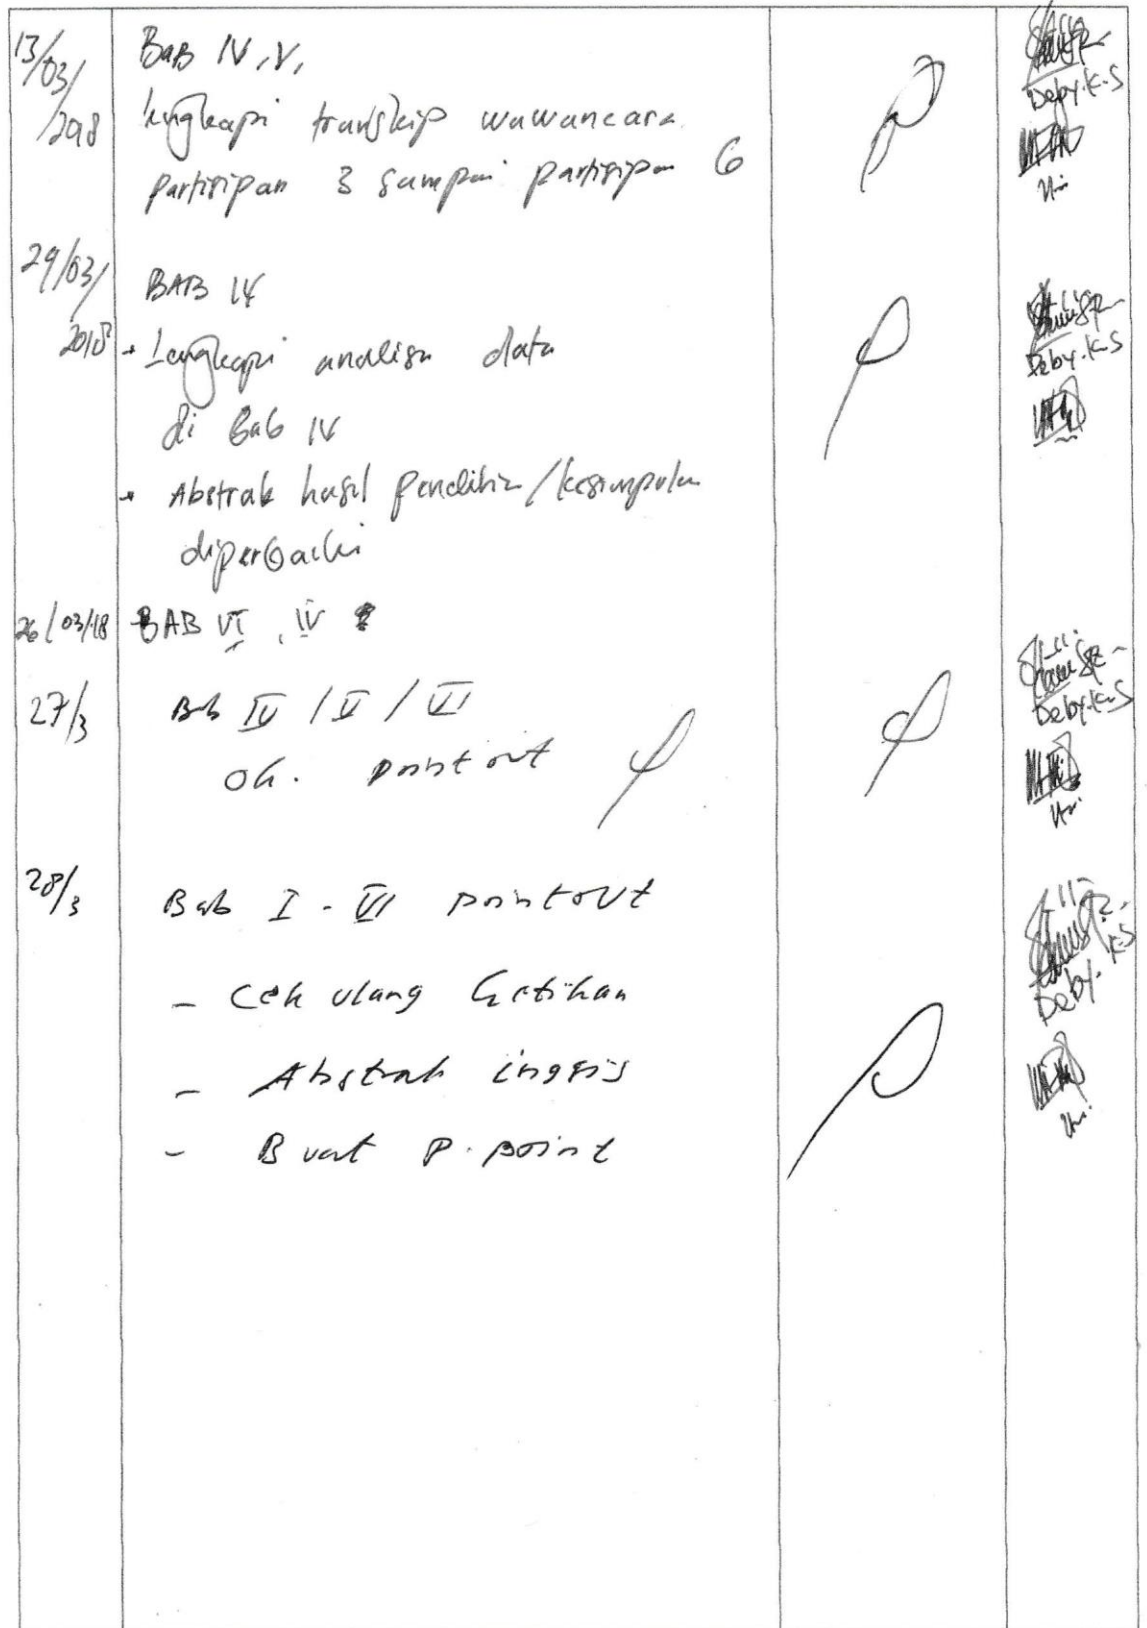 13/03/
/2018
BAB IV, V,
lengkapi transkip wawancara
partisipan 3 sampai partisipan 6
Deby.K.S
29/03/
2018
BAB IV
- Lengkapi analisa data
di Bab IV
Deby.K.S
- Abstrak hasil penelitian/kesimpulan
diperbaiki
26/03/18 BAB VI, IV
27/3 Bab IV / V / VI
Ok. print out
Deby.K.S
28/3 Bab I - VI printout
Deby.K.S
- Cek ulang ketikan
- Abstrak inggris
- Buat P. point